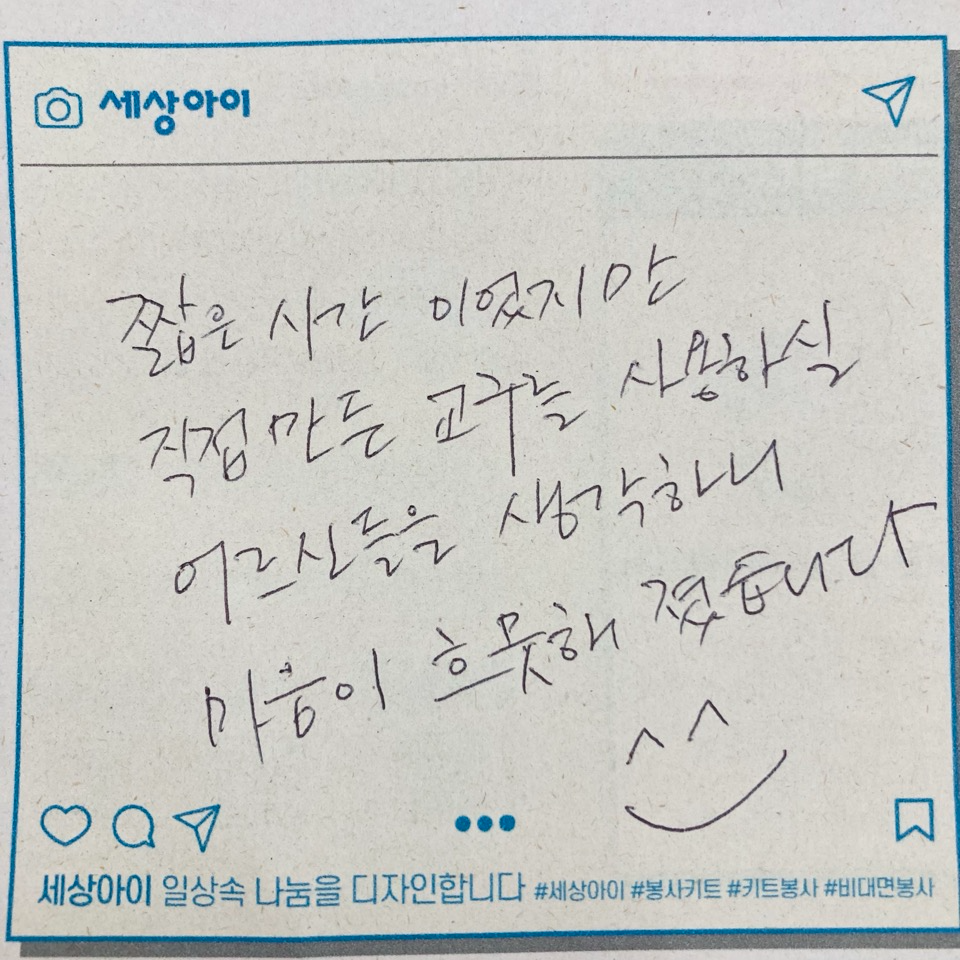 세상아이
짧은 시간 이었지만
직접 만든 교구를 사용하실
어르신들을 생각하니
마음이 흐뭇해 졌습니다
^^
세상아이 일상속 나눔을 디자인합니다 #세상아이 #봉사키트 #키트봉사 #비대면봉사